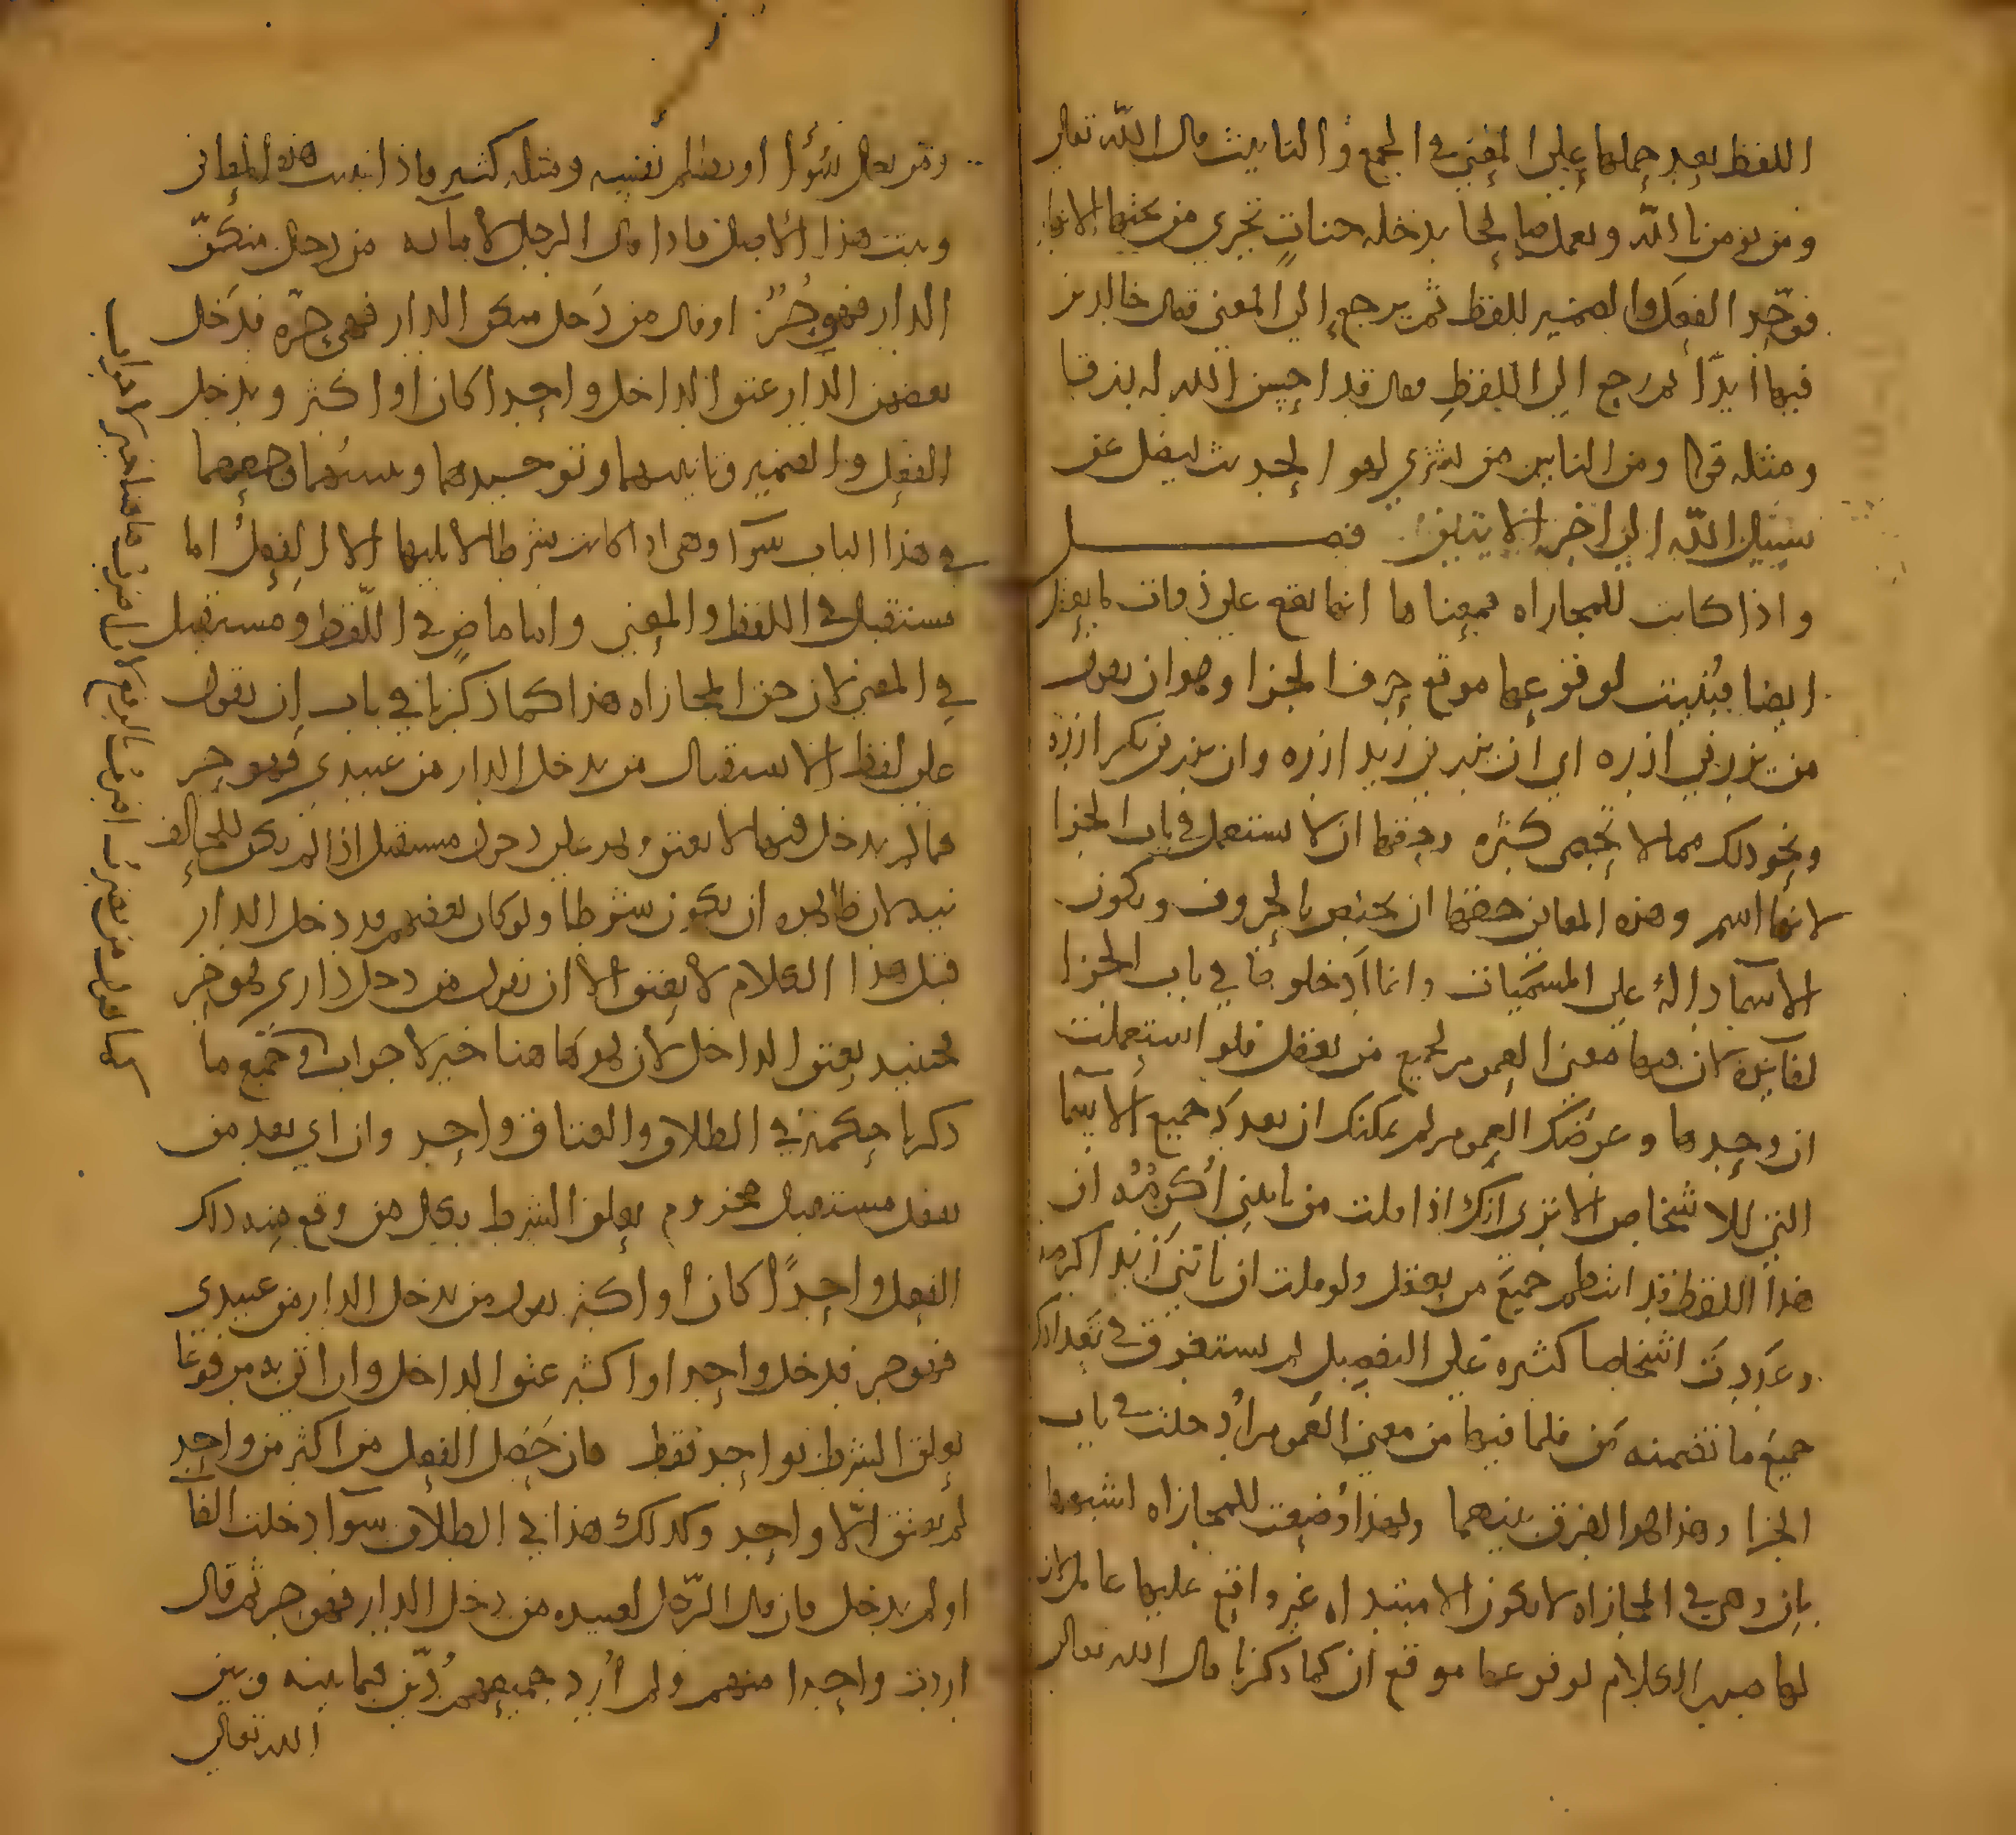 اللفظ بعد حملها على المعنى في الجمع والتانيث قال الله تعالى
ومن يومن بالله ويعمل صالحا يدخله جنات تجري من تحتها الانهار
فوحد الفعل والضمير للفظ ثم يرجع الى المعنى فقال خالدين
فيها ابدا ثم رجع الى اللفظ فقال قد احسن الله له رزقا
ومثله قوله ومن الناس من يشتري لهو الحديث ليضل عن
سبيل الله الى اخر الايتين فصل
واذا كانت للمجازاه فمعناها انها تقع على ذوات ما يعقل
ايضا فبنيت لوقوعها موقع حرف الجزا وهو ان يقول
من يزرني ازره اي ان يزرني زيد ازره وان يزرني بكر ازره
ونحو ذلك مما لا يحصى كثره وحقها ان لا تستعمل في باب الجزا
لانها اسم وهذه المعاني حقها ان تختص بالحروف وتكون
الاسما دالة على المسميات وانما ادخلوها في باب الجزا
لفايدة كان فيها معنى العموم لجميع من يعقل فلو استعملت
ان وحدها وغرضك العموم لم يمكنك ان تعد جميع الاسما
التي للاشخاص الا ترى انك اذا قلت من ياتني اكرمه ان
هذا اللفظ قد انتظم جميع من يعقل ولو قلت ان ياتني زيد اكرمه
وعددت اشخاصا كثيره على التفصيل لم يستغرق في تعدادك
جميع ما تضمنه من فلما فيها من معنى العموم ادخلت في باب
الجزا وهذا هو الفرق بينهما ولهذا وضعت للمجازاه اشبهوها
بان وهي في المجازاه لا تكون الا مبتداه غير واقع عليها عامل لان
لها صدر الكلام لوقوعها موقع ان كما ذكرنا قال الله تعالى
ومن يعمل سوءا او يظلم نفسه ومثله كثير فاذا ثبتت هذه المعاني
وثبت هذا الاصل فاذا قال الرجل لامايه من دخل منكن
الدار فهو حر او قال من دخل منكن الدار فهي حرة فدخل
بعضهن الدار عتق الداخل واحدا كان او اكثر وتدخل
الفعل والضمير وتانيثهما وتوحيدهما وتثنيتهما وجمعهما
في هذا الباب سوا وهي اذا كانت شرطا لا يليها الا الفعل اما
مستقبل في اللفظ والمعنى واما ماض في اللفظ ومستقبل
في المعنى لان حق المجازاه هذا كما ذكرنا في باب ان تقول
على لفظ الاستقبال من يدخل الدار من عبيدي فهو حر
فما لم يدخل فيها لا يعتق ولم على دخول مستقبل اذا لم يكن للحالف
نيه لان ظاهره ان يكون شرطا ولو كان بعضهم قد دخل الدار
قبل هذا الكلام لا يعتق الا ان تقول من دخل داري فهو حر
فحينيد يعتق الداخل لان فهو هاهنا خبر لا جواب وجميع ما
ذكرنا حكمه في الطلاق والعتاق واحد وان اي بعد من
بفعل مستقبل مجزوم يعلق الشرط بكل من وقع منه ذلك
الفعل واحدا كان او اكثر تقول من يدخل الدار من عبيدي
فهو حر فدخل واحد او اكثر عتق الداخل وان اتى به مرفوعا
يعلق الشرط بواحد فقط فان حصل الفعل من اكثر من واحد
لم يعتق الا واحد وكذلك هذا في الطلاق سوا دخلت الفا
او لم يدخل فان قال الرجل لعبيده من دخل الدار فهو حر ثم قال
اردت واحدا منهم ولم ارد جميعهم دين فيما بينه وبين
الله تعالى